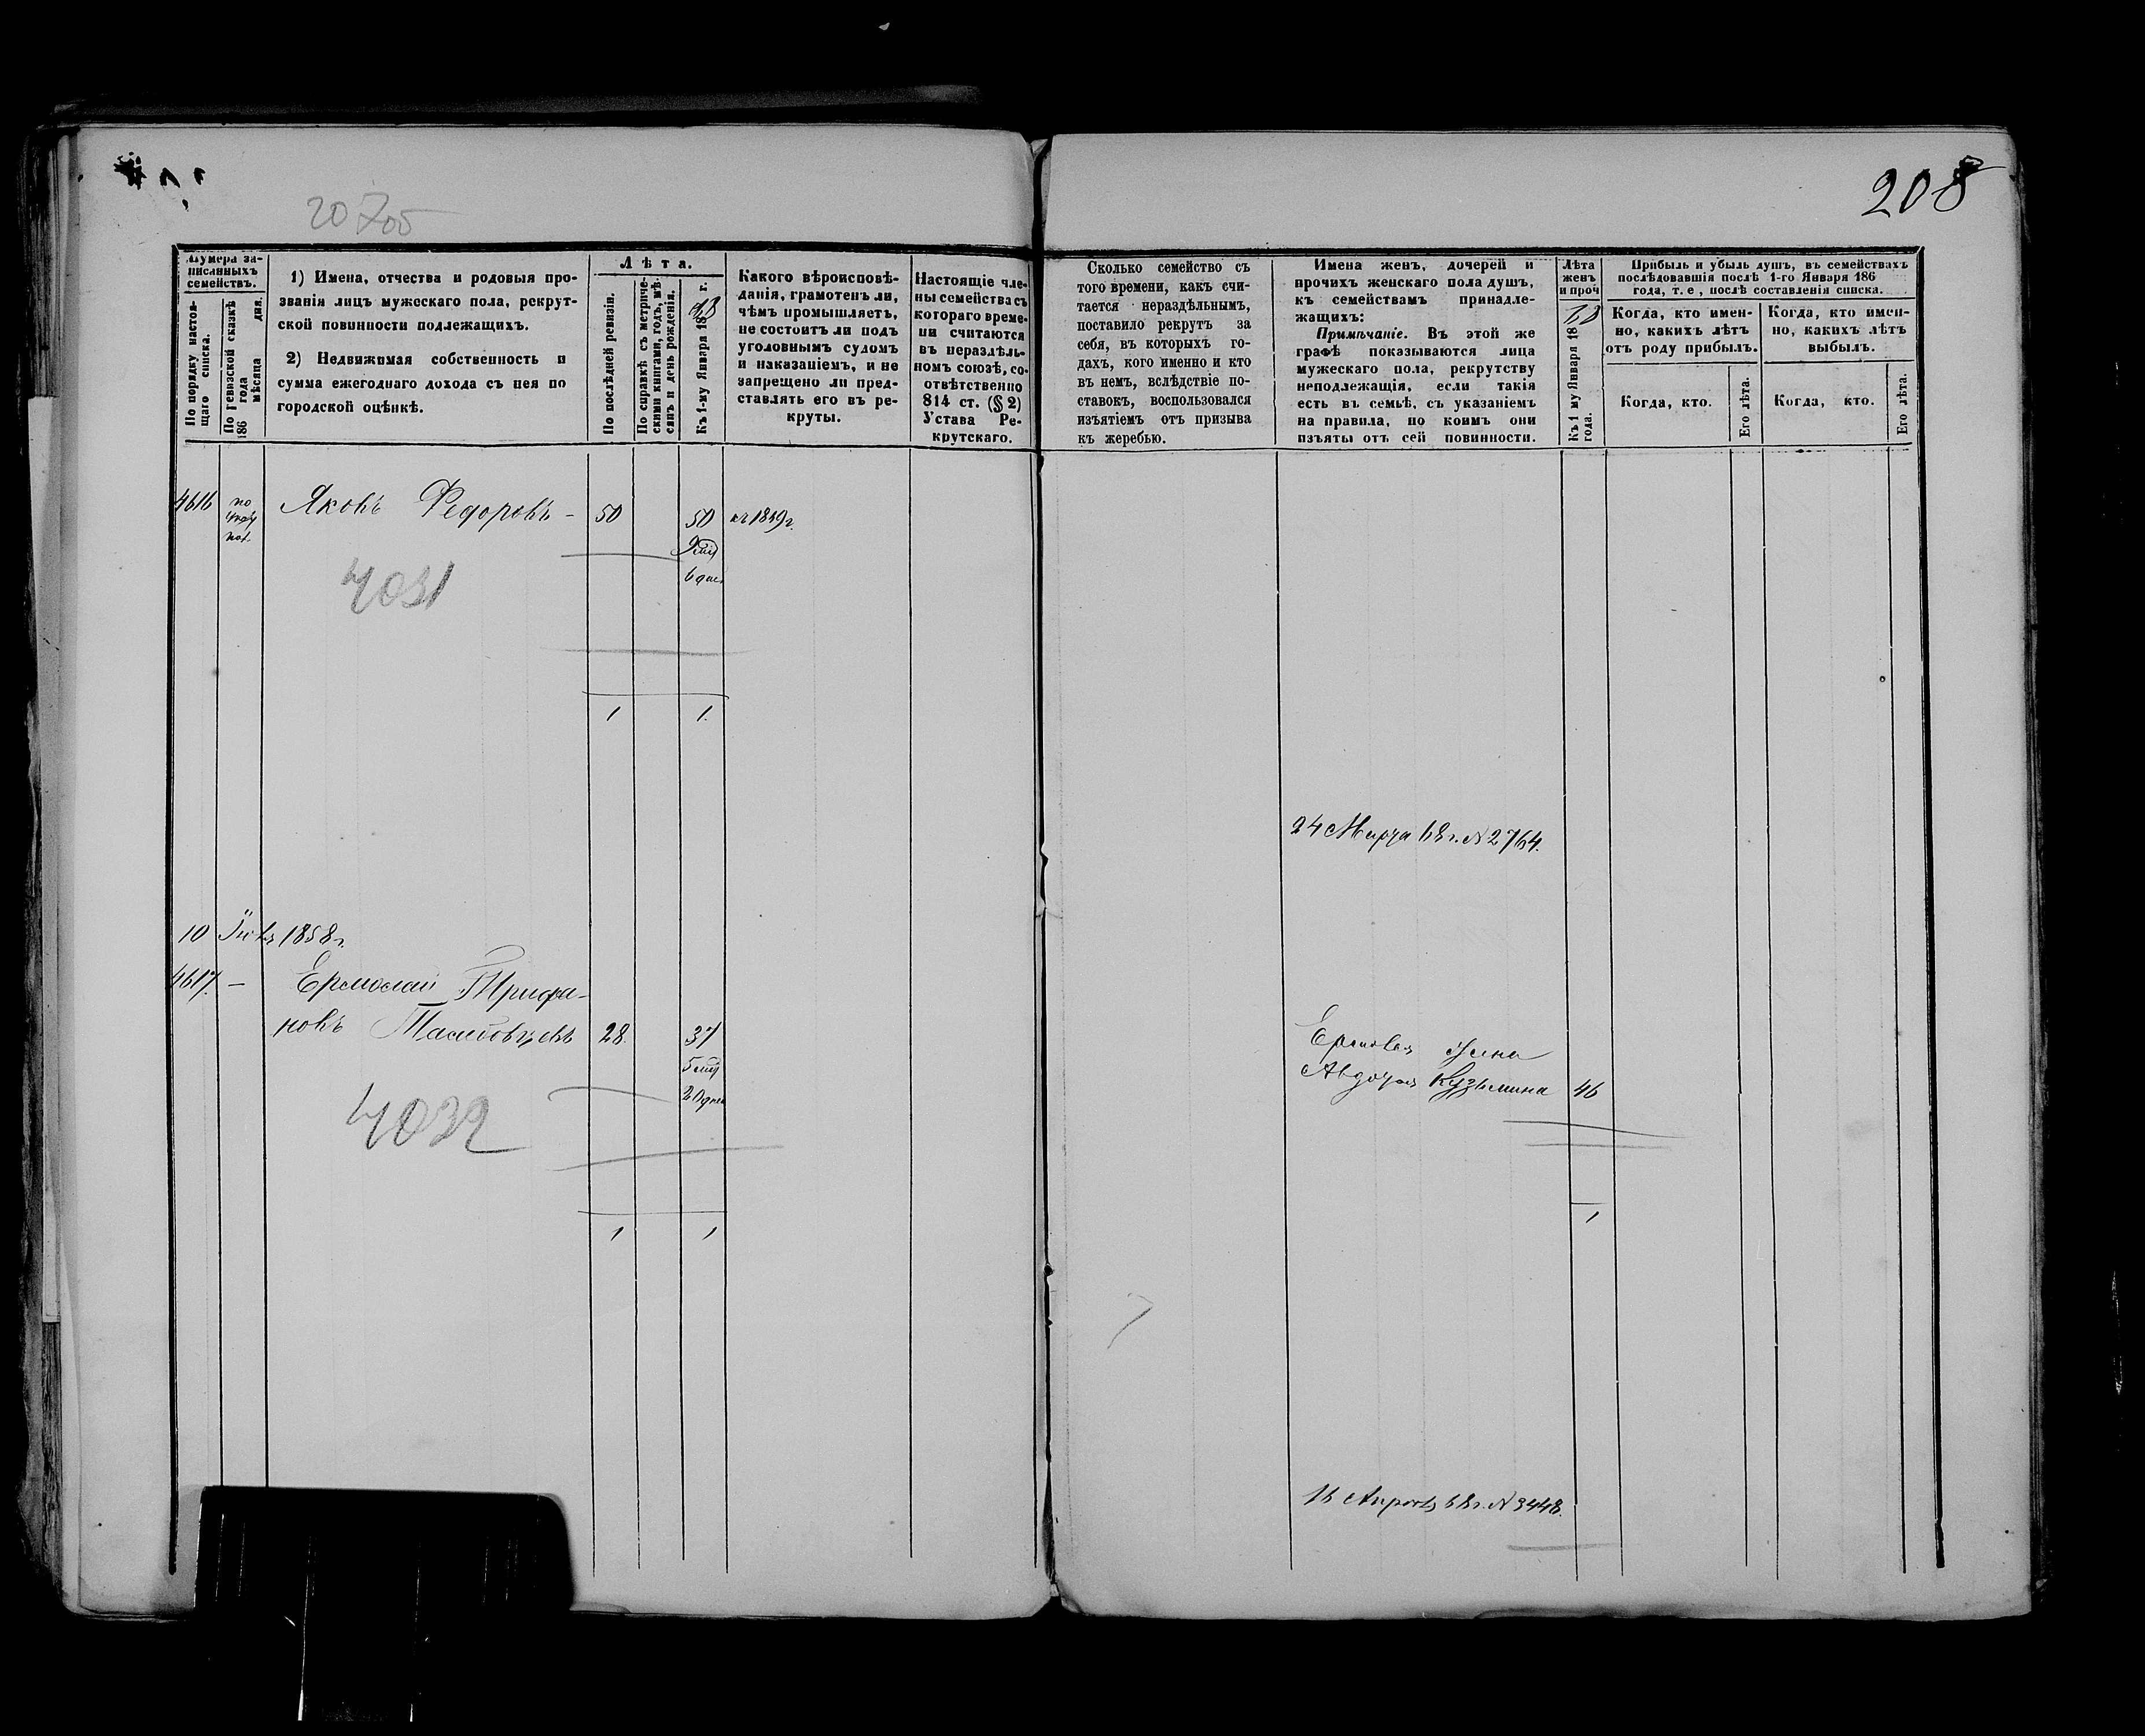 208
Нумера за-
писанныхъ
семействъ.
По порядку настоя-
щаго списка.
По Ревизской сказкѣ
186 года
мѣсяца дня.
1) Имена, отчества и родовыя про-
званія лицъ мужескаго пола, рекрут-
ской повинности подлежащихъ.
2) Недвижимая собственность и
сумма ежегоднаго дохода съ нея по
городской оцѣнкѣ.
Лѣта.
По послѣдней ревизіи.
По справкѣ съ метриче-
скими книгами, годъ, мѣ-
сяцъ и день рожденія.
Къ 1-му Января 1868 г.
Какого вѣроисповѣ-
данія, грамотенъ ли,
чѣмъ промышляетъ,
не состоитъ ли подъ
уголовнымъ судомъ
и наказаніемъ, и не
запрещено ли пред-
ставлять его въ ре-
круты.
Настоящіе чле-
ны семейства съ
котораго време-
ни считаются
въ нераздѣль-
номъ союзѣ, со-
отвѣтственно
814 ст. (§ 2)
Устава Ре-
крутскаго.
Сколько семейство съ
того времени, какъ счи-
тается нераздѣльнымъ,
поставило рекрутъ за
себя, въ которыхъ го-
дахъ, кого именно и кто
въ немъ, вслѣдствіе по-
ставокъ, воспользовался
изъятіемъ отъ призыва
къ жеребью.
Имена женъ, дочерей и
прочихъ женскаго пола душъ,
къ семействамъ принадле-
жащихъ:
Примѣчаніе. Въ этой же
графѣ показываются лица
мужескаго пола, рекрутству
неподлежащія, если такія
есть въ семьѣ, съ указаніемъ
на правила, по коимъ они
изъяты отъ сей повинности.
Лѣта
женъ
и проч
Къ 1 му Января 1868
года.
Прибыль и убыль душъ, въ семействахъ
послѣдовавшія послѣ 1-го Января 186
года, т. е, послѣ составленія списка.
Когда, кто имен-
но, какихъ лѣтъ
отъ роду прибылъ.
Когда, кто имен-
но, какихъ лѣтъ
выбылъ.
Когда, кто.
Его лѣта.
Когда, кто.
Его лѣта.
4616 Яковъ Федоровъ - 50 50
6 дне
4031
1 1.
24 Марта 68 г. N 2764.
10 1858 г.
4617. — Ермолай Трифа-
новъ 28. 37
5 мѣц
20 дней
Ермолая жена
Авдотья Кузьмина 46
4032
1 1
1
16 Апрѣля 68 г. N 3448.